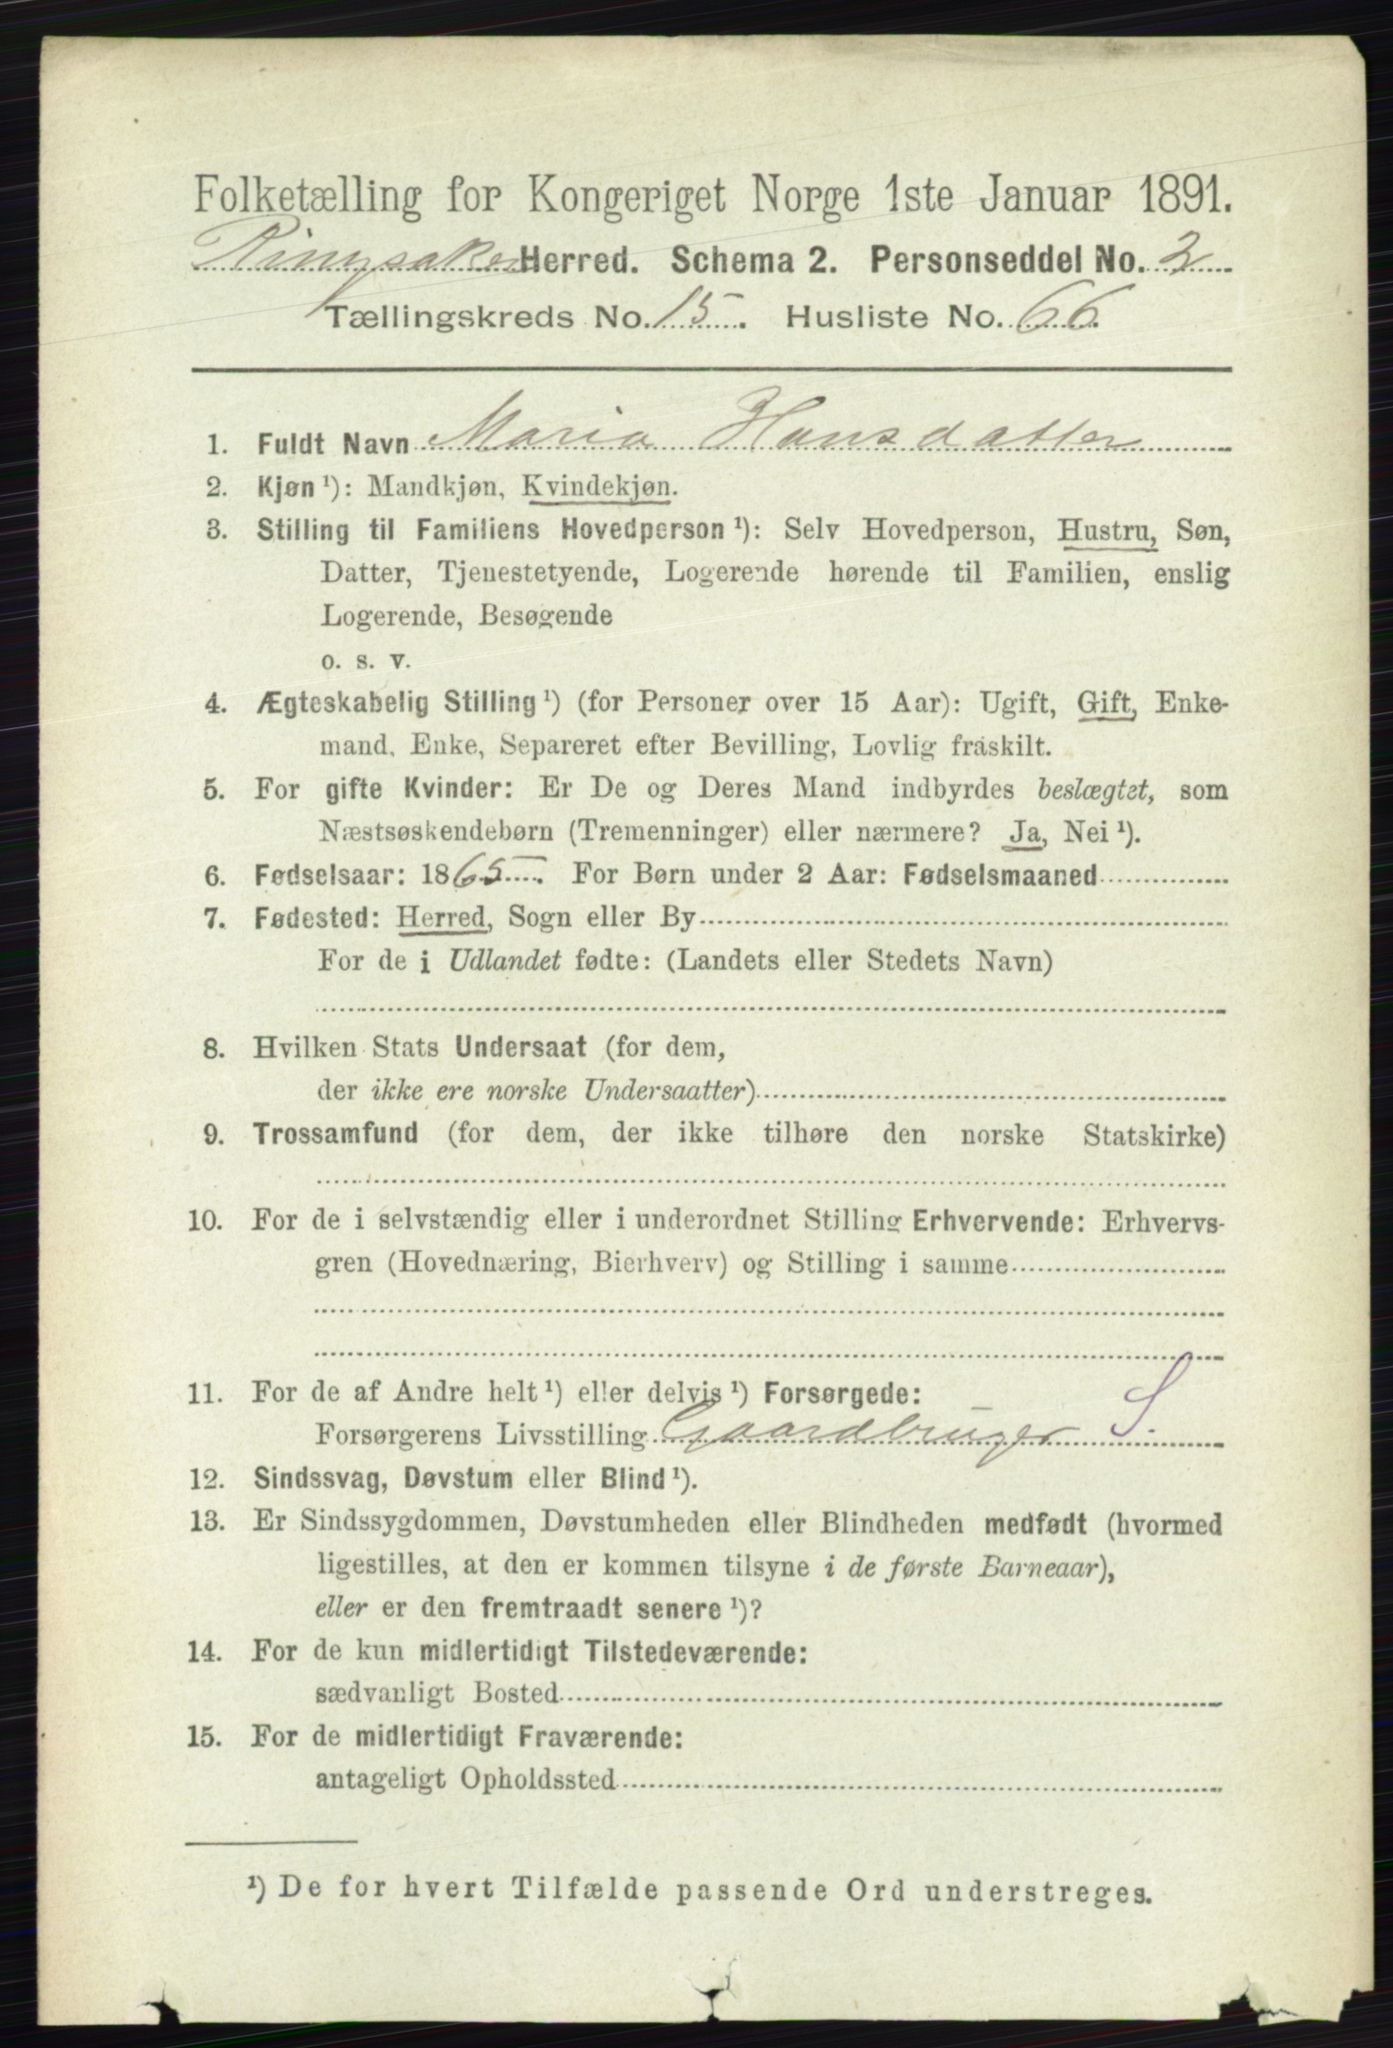 Folketælling for Kongeriget Norge 1ste Januar 1891.
Ringsaker Herred. Schema 2. Personseddel No. 2
Tællingskreds No. 15. Husliste No. 66.
1. Fuldt Navn Maria Hansdatter
2. Kjøn ¹): Mandkjøn, Kvindekjøn.
3. Stilling til Familiens Hovedperson ¹): Selv Hovedperson, Hustru, Søn,
Datter, Tjenestetyende, Logerende hørende til Familien, enslig
Logerende, Besøgende
o. s. v.
4. Ægteskabelig Stilling ¹) (for Personer over 15 Aar): Ugift, Gift, Enke-
mand, Enke, Separeret efter Bevilling, Lovlig fraskilt.
5. For gifte Kvinder: Er De og Deres Mand indbyrdes beslægtet, som
Næstsøskendebørn (Tremenninger) eller nærmere? Ja, Nei ¹).
6. Fødselsaar: 1865. For Børn under 2 Aar: Fødselsmaaned
7. Fødested: Herred, Sogn eller By
For de i Udlandet fødte: (Landets eller Stedets Navn)
8. Hvilken Stats Undersaat (for dem,
der ikke ere norske Undersaatter)
9. Trossamfund (for dem, der ikke tilhøre den norske Statskirke)
10. For de i selvstændig eller i underordnet Stilling Erhvervende: Erhvervs-
gren (Hovednæring, Bierhverv) og Stilling i samme
11. For de af Andre helt ¹) eller delvis ¹) Forsørgede:
Forsørgerens Livsstilling Gaardbruger S.
12. Sindssvag, Døvstum eller Blind ¹).
13. Er Sindssygdommen, Døvstumheden eller Blindheden medfødt (hvormed
ligestilles, at den er kommen tilsyne i de første Barneaar),
eller er den fremtraadt senere ¹)?
14. For de kun midlertidigt Tilstedeværende:
sædvanligt Bosted
15. For de midlertidigt Fraværende:
antageligt Opholdssted
¹) De for hvert Tilfælde passende Ord understreges.